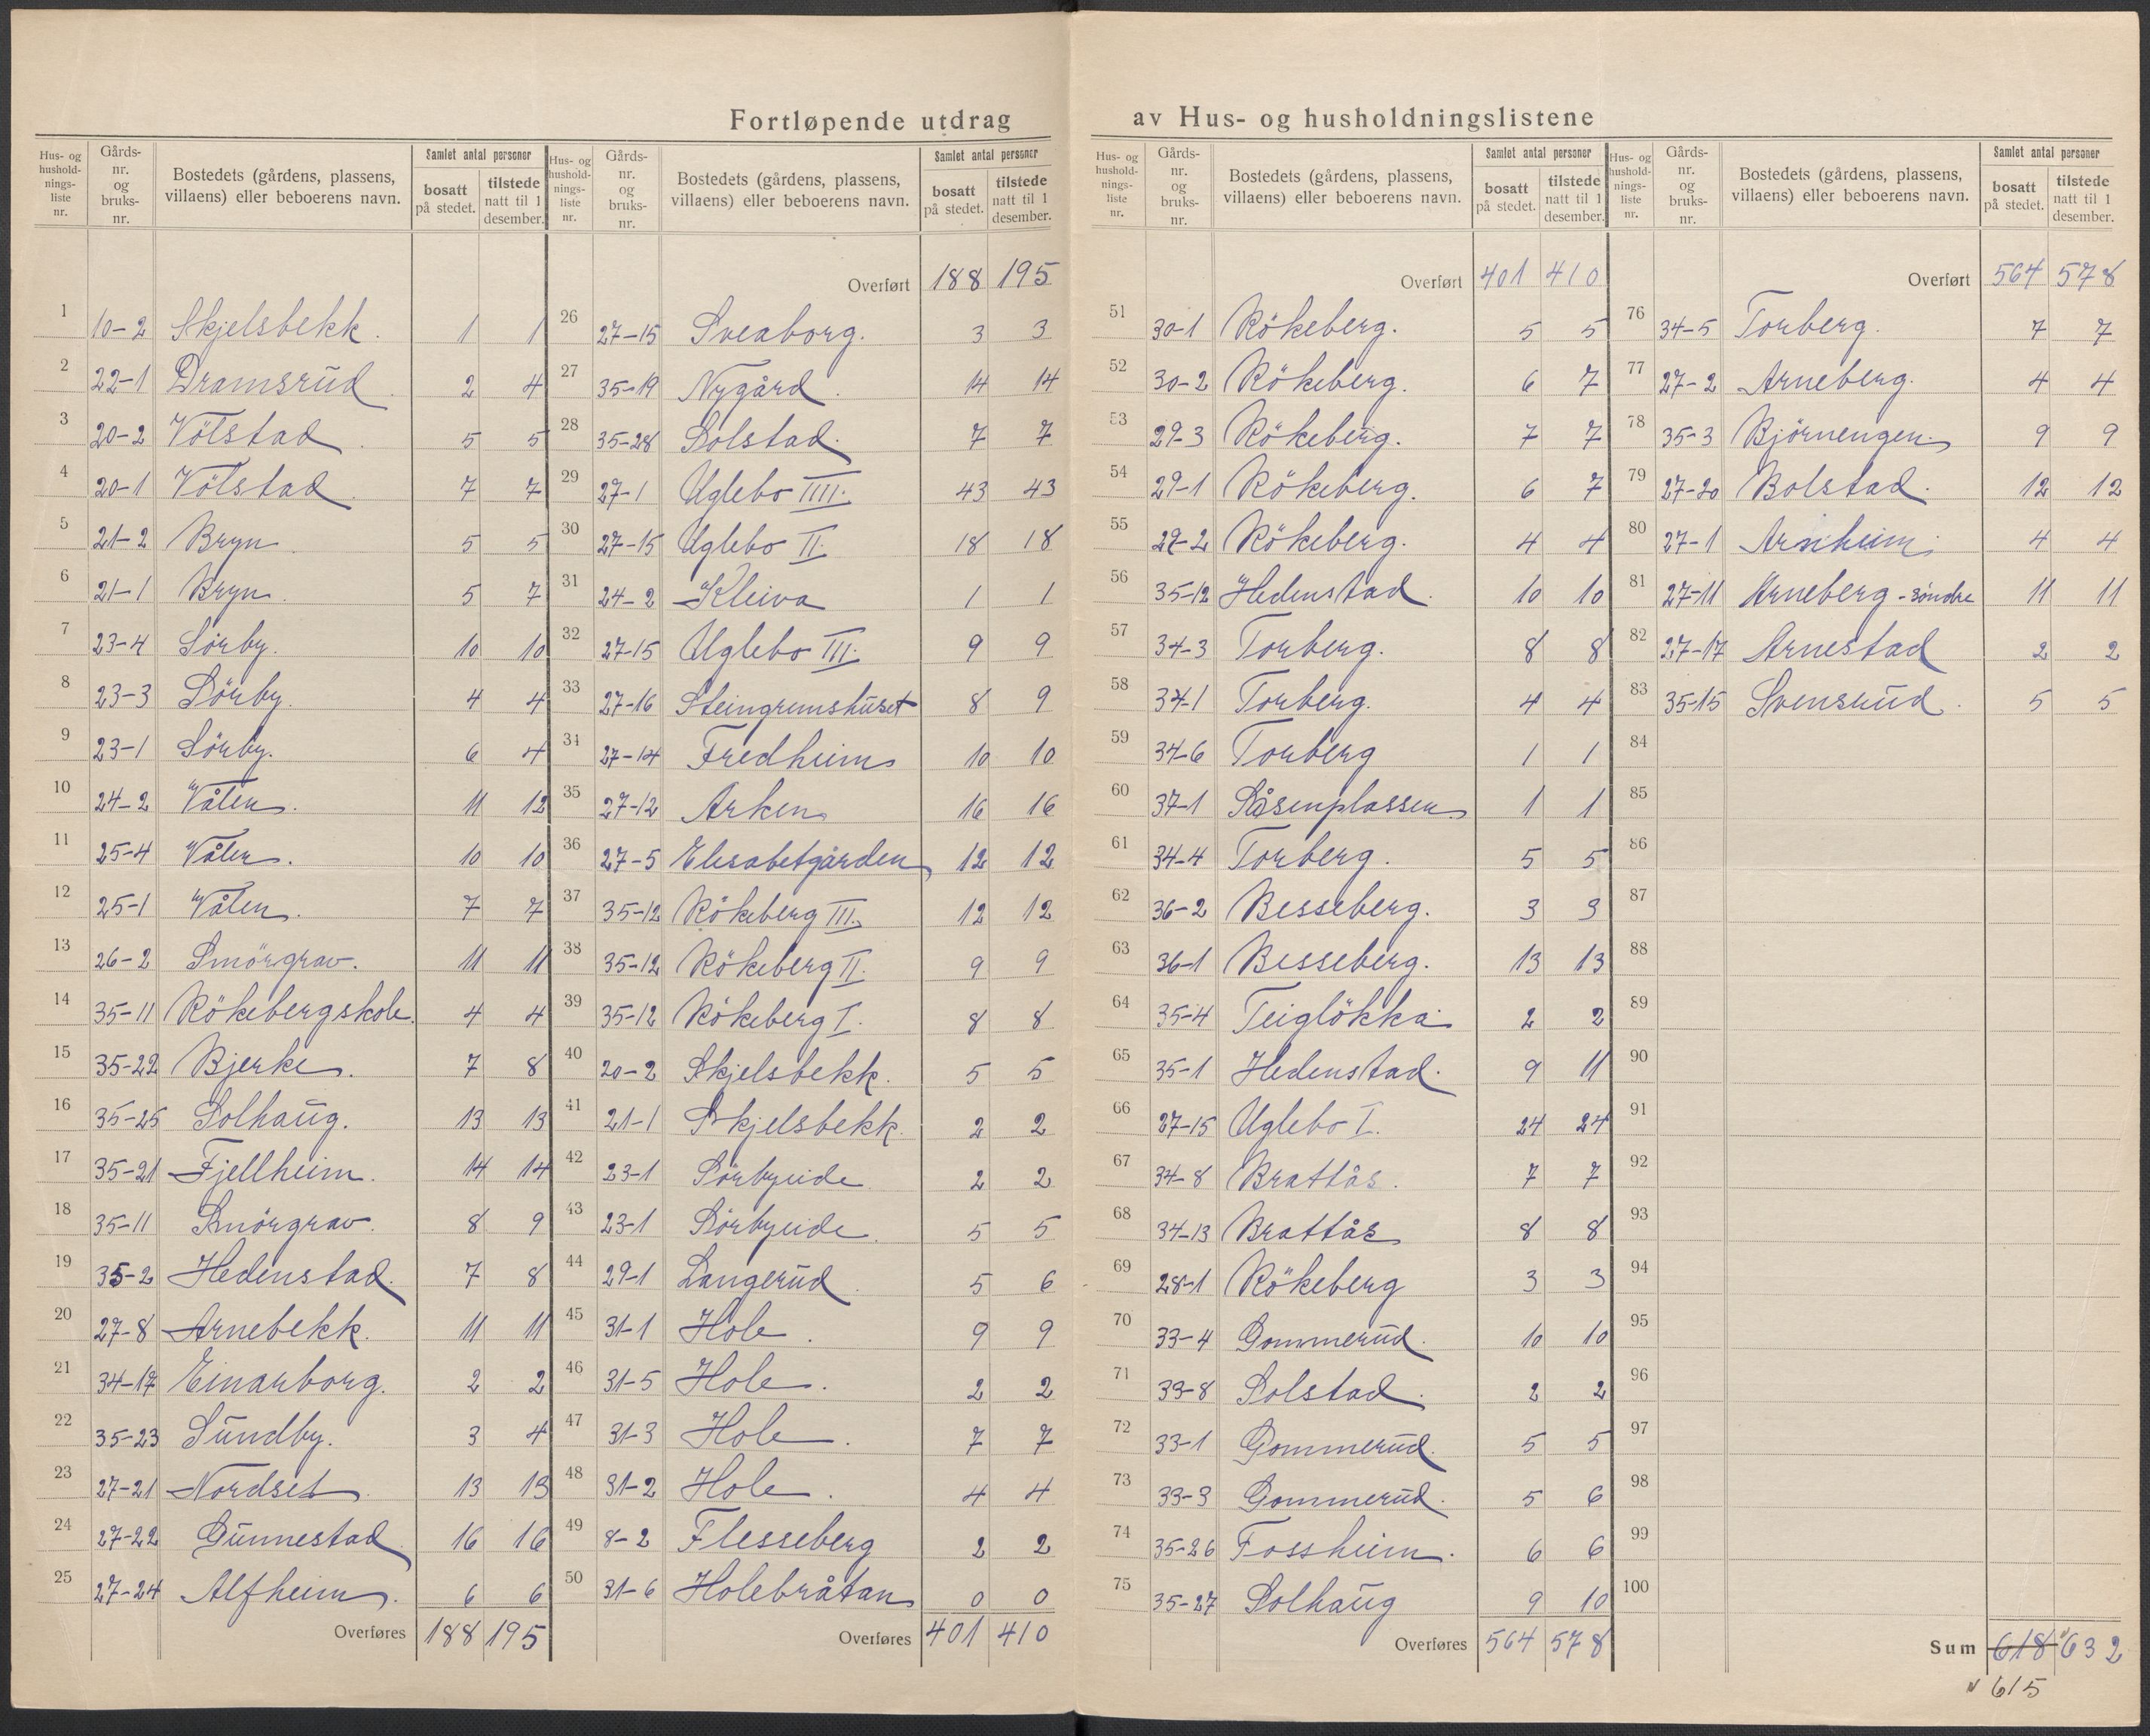 Fortløpende utdrag av Hus- og husholdningslistene
Hus- og husholdningsliste nr.
Gårds-nr. og bruks-nr.
Bostedets (gårdens, plassens, villaens) eller beboerens navn.
Samlet antal personer
bosatt på stedet.
tilstede natt til 1 desember.
1 10-2 Skjelsbekk. 1 1
2 22-1 Dramsrud. 2 4
3 20-2 Völstad. 5 5
4 20-1 Völstad. 7 7
5 21-2 Bryn. 5 5
6 21-1 Bryn. 5 7
7 23-4 Sörby. 10 10
8 23-3 Sörby. 4 4
9 23-1 Sörby. 6 4
10 24-2 Vålen. 11 12
11 25-4 Vålen. 10 10
12 25-1 Vålen. 7 7
13 26-2 Smörgrav. 11 11
14 35-11 Rökebergskole. 4 4
15 35-22 Bjerke. 7 8
16 35-25 Solhaug. 13 13
17 35-21 Fjellheim. 14 14
18 35-11 Smörgrav. 8 9
19 35-2 Hedenstad. 7 8
20 27-8 Arnebekk. 11 11
21 34-17 Einarborg. 2 2
22 35-23 Sundby. 3 4
23 27-21 Nordset 13 13
24 27-22 Gunnestad 16 16
25 27-24 Alfheim. 6 6
Overføres 188 195
Hus- og husholdningsliste nr.
Gårds-nr. og bruks-nr.
Bostedets (gårdens, plassens, villaens) eller beboerens navn.
Samlet antal personer
bosatt på stedet.
tilstede natt til 1 desember.
Overført 188 195
26 27-15 Sveaborg. 3 3
27 35-19 Nygård. 14 14
28 35-28 Solstad. 7 7
29 27-1 Uglebo IIII. 43 43
30 27-15 Uglebo II. 18 18
31 24-2 Kleiva 1 1
32 27-15 Uglebo III. 9 9
33 27-16 Steingrimshuset 8 9
34 27-14 Fredheim 10 10
35 27-12 Arken 16 16
36 27-5 Elisabetgården 12 12
37 35-12 Rökeberg III. 12 12
38 35-12 Rökeberg II. 9 9
39 35-12 Rökeberg I. 8 8
40 20-2 Skjelsbekk. 5 5
41 21-1 Skjelsbekk. 2 2
42 23-1 Sörbyeide 2 2
43 23-1 Sörbyeide. 5 5
44 29-1 Langerud. 5 6
45 31-1 Hole. 9 9
46 31-5 Hole. 2 2
47 31-3 Hole. 7 7
48 31-2 Hole. 4 4
49 8-2 Flesseberg 2 2
50 31-6 Holebråtan 0 0
Overføres 401 410
Hus- og husholdningsliste nr.
Gårds-nr. og bruks-nr.
Bostedets (gårdens, plassens, villaens) eller beboerens navn.
Samlet antal personer
bosatt på stedet.
tilstede natt til 1 desember.
Overført 401 410
51 30-1 Rökeberg. 5 5
52 30-2 Rökeberg. 6 7
53 29-3 Rökeberg. 7 7
54 29-1 Rökeberg. 6 7
55 29-2 Rökeberg. 4 4
56 35-12 Hedenstad. 10 10
57 34-3 Torberg. 8 8
58 34-1 Torberg. 4 4
59 34-6 Torberg 1 1
60 37-1 Såsenplassen 1 1
61 34-4 Torberg. 5 5
62 36-2 Besseberg. 3 3
63 36-1 Besseberg. 13 13
64 35-4 Teiglökka 2 2
65 35-1 Hedenstad. 9 11
66 27-15 Uglebo I. 24 24
67 34-8 Brattås. 7 7
68 34-13 Brattås 8 8
69 28-1 Rökeberg 3 3
70 33-4 Gommerud. 10 10
71 33-8 Solstad. 2 2
72 33-1 Gommerud. 5 5
73 33-3 Gommerud. 5 6
74 35-26 Fossheim. 6 6
75 35-27 Solhaug 9 10
Overføres 564 578
Hus- og husholdningsliste nr.
Gårds-nr. og bruks-nr.
Bostedets (gårdens, plassens, villaens) eller beboerens navn.
Samlet antal personer
bosatt på stedet.
tilstede natt til 1 desember.
Overført 564 578
76 34-5 Torberg. 7 7
77 27-2 Arneberg. 4 4
78 35-3 Björnengen. 9 9
79 27-20 Bolstad. 12 12
80 27-1 Arnheim. 4 4
81 27-11 Arneberg-söndre 11 11
82 27-17 Arnestad 2 2
83 35-15 Svensrud. 5 5
84
85
86
87
88
89
90
91
92
93
94
95
96
97
98
99
100
Sum 618 632
615